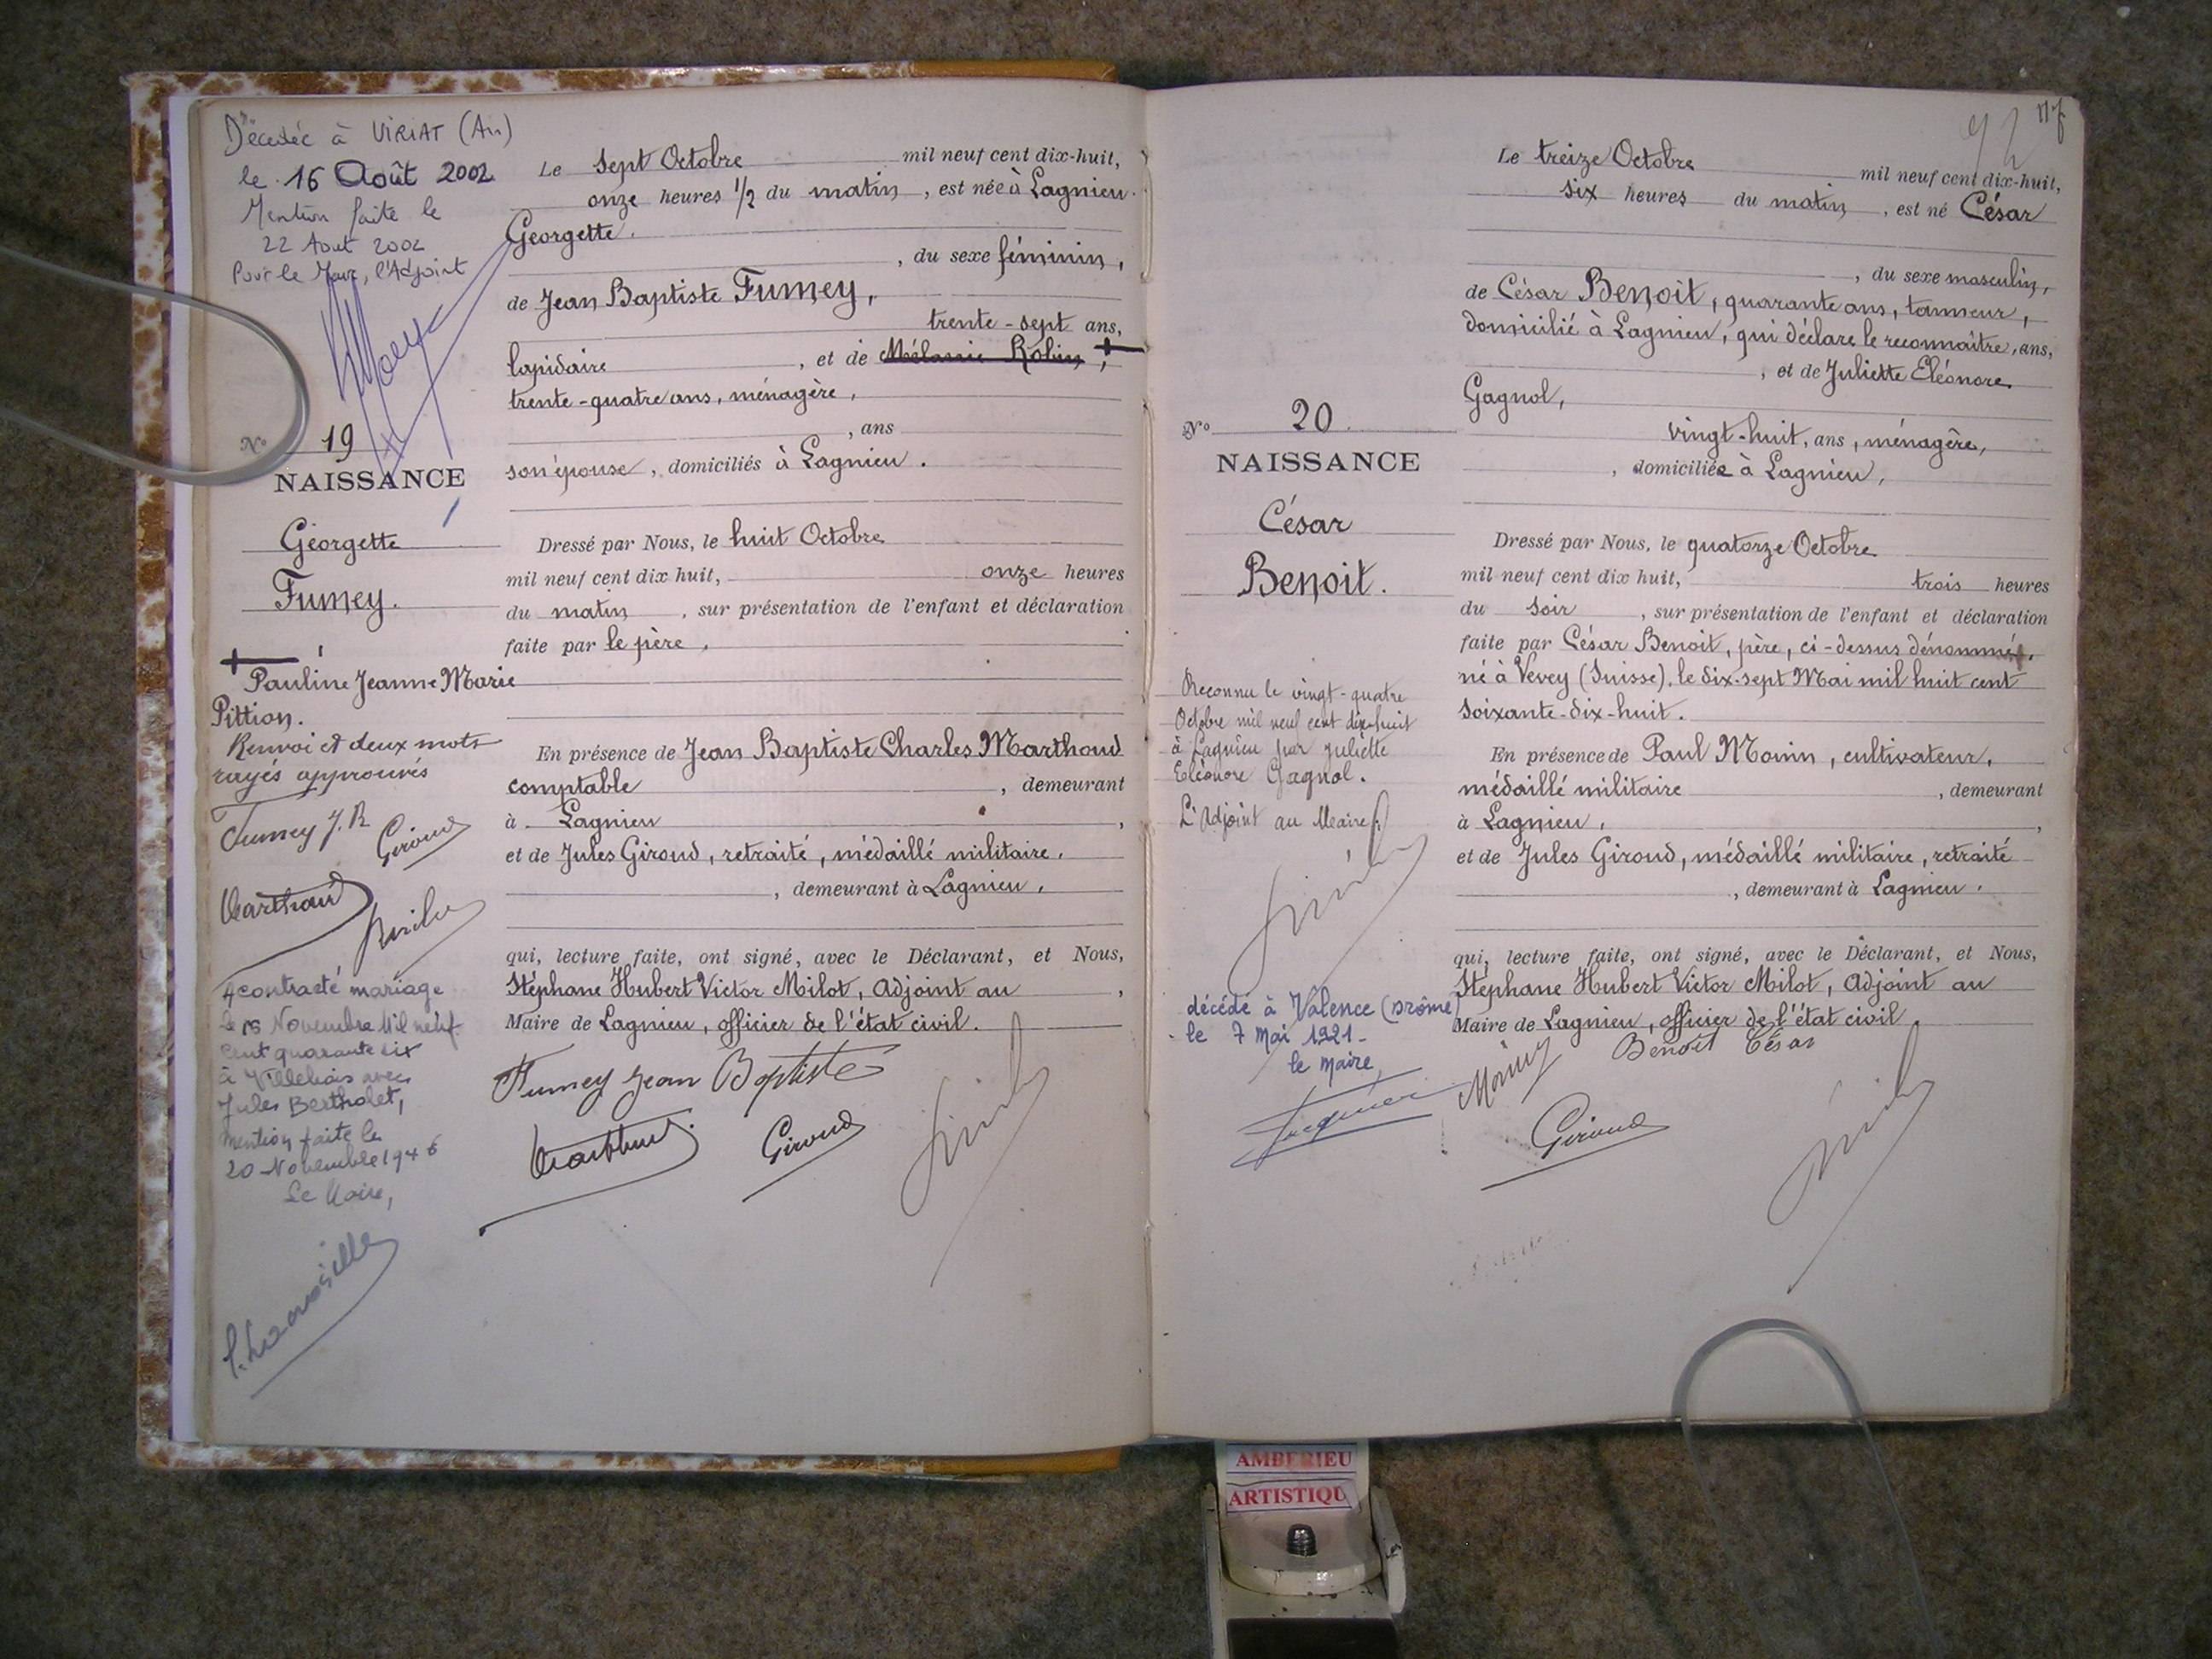 Décédée à VIRIAT (Ain)
le 16 Août 2002
Mention faite le
22 Aout 2002
Pour le Maire, l'Adjoint
N° 19
NAISSANCE
Georgette
Fumey.
Pauline Jeanne Marie
Pittion.
Renvoi et deux mots
rayés approuvés
Fumey J.B
Giroud
Marthoud
A contracté mariage
le 16 Novembre Mil neuf
cent quarante six
à Villebois avec
Jules Bertholet,
mention faite le
20 Novembre 1946
Le Maire,
Le sept Octobre mil neuf cent dix-huit,
onze heures 1/2 du matin, est née à Lagnieu.
Georgette.
, du sexe féminin,
de Jean Baptiste Fumey,
trente-sept ans,
lapidaire, et de Mélanie Robin,
trente-quatre ans, ménagère,
, ans
son épouse, domiciliés à Lagnieu.
Dressé par Nous, le huit Octobre
mil neuf cent dix huit, onze heures
du matin, sur présentation de l'enfant et déclaration
faite par le père,
En présence de Jean Baptiste Charles Marthoud
comptable, demeurant
à Lagnieu,
et de Jules Giroud, retraité, médaillé militaire,
, demeurant à Lagnieu,
qui, lecture faite, ont signé, avec le Déclarant, et Nous,
Stéphane Hubert Victor Milot, Adjoint au,
Maire de Lagnieu, officier de l'état civil.
Fumey Jean Baptiste
Marthoud
Giroud
117
92
N° 20.
NAISSANCE
César
Benoit.
Reconnu le vingt-quatre
Octobre mil neuf cent dix-huit
à Lagnieu par Juliette
Eléonore Gagnol.
L'Adjoint au Maire
décédé à Valence (Drôme)
le 7 Mai 1921-
le Maire,
Le treize Octobre mil neuf cent dix-huit,
six heures du matin, est né César
, du sexe masculin,
de César Benoit, quarante ans, tanneur,
domicilié à Lagnieu, qui déclare le reconnaître, ans,
, et de Juliette Eléonore
Gagnol,
vingt-huit, ans, ménagère,
, domiciliée à Lagnieu,
Dressé par Nous, le quatorze Octobre
mil neuf cent dix huit, trois heures
du soir, sur présentation de l'enfant et déclaration
faite par César Benoit, père, ci-dessus dénommé,
né à Vevey (Suisse), le dix-sept Mai mil huit cent
soixante-dix-huit.
En présence de Paul Monin, cultivateur,
médaillé militaire, demeurant
à Lagnieu,
et de Jules Giroud, médaillé militaire, retraité
, demeurant à Lagnieu.
qui, lecture faite, ont signé, avec le Déclarant, et Nous,
Stéphane Hubert Victor Milot, Adjoint au
Maire de Lagnieu, officier de l'état civil.
Monin
Benoit César
Giroud
AMBERIEU
ARTISTIQU